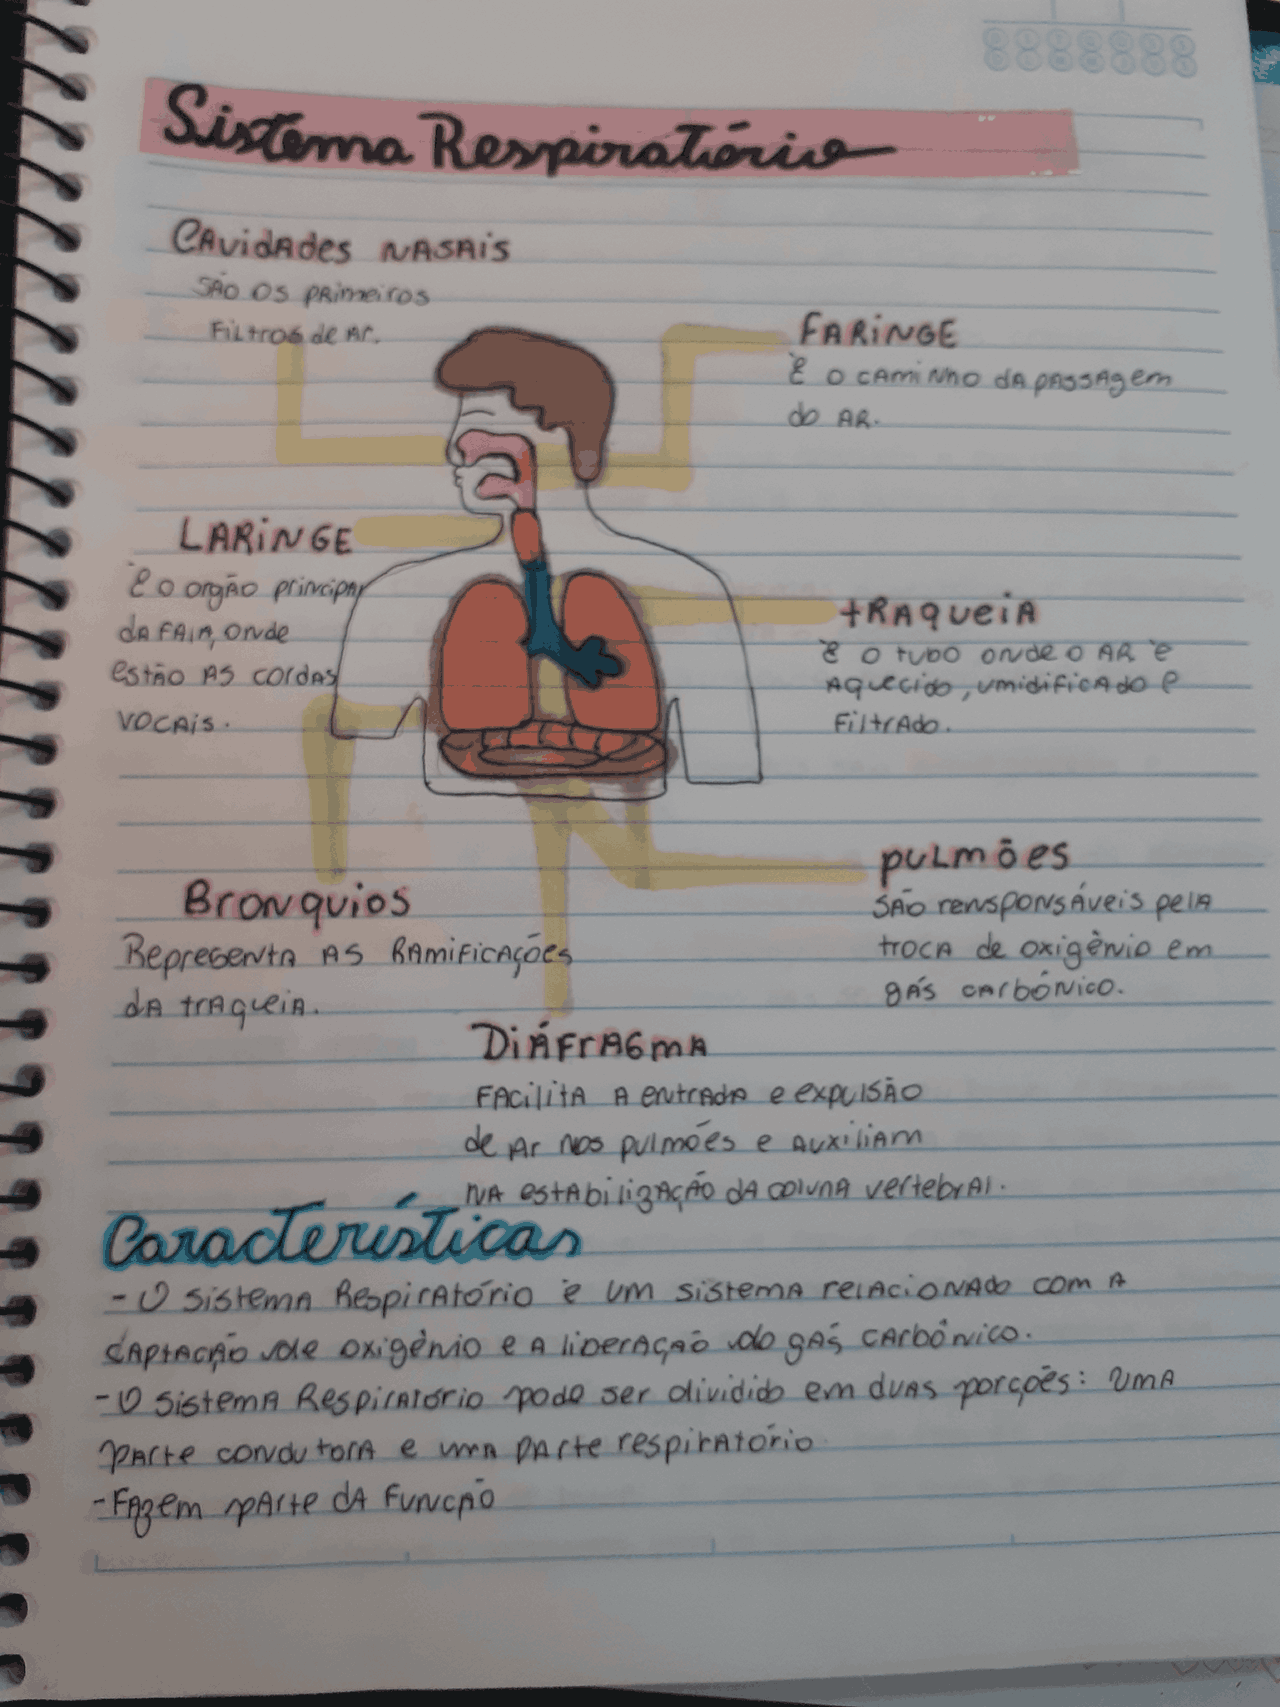 Sistema Respiratório
Cavidades nasais
São os primeiros
Filtros de Ar.
Faringe
è o caminho da passagem
do Ar.
Laringe
è o orgão principal
da fala, onde
estão as cordas
vocais.
traqueia
è o tubo onde o Ar è
Aquecido, umidificado e
Filtrado.
Bronquios
Representa as Ramificações
da traqueia.
pulmões
São rensponsáveis pela
troca de oxigênio em
gás carbônico.
Diáfragma
Facilita a entrada e expulsão
de Ar nos pulmões e auxiliam
na estabilização da coluna vertebral.
Características
- O sistema Respiratório è um sistema relacionado com a
captação de oxigênio e a liberação do gás carbônico.
- O sistema Respiratório pode ser dividido em duas porções: uma
parte condutora e uma parte respiratório
- Fazem parte da Função